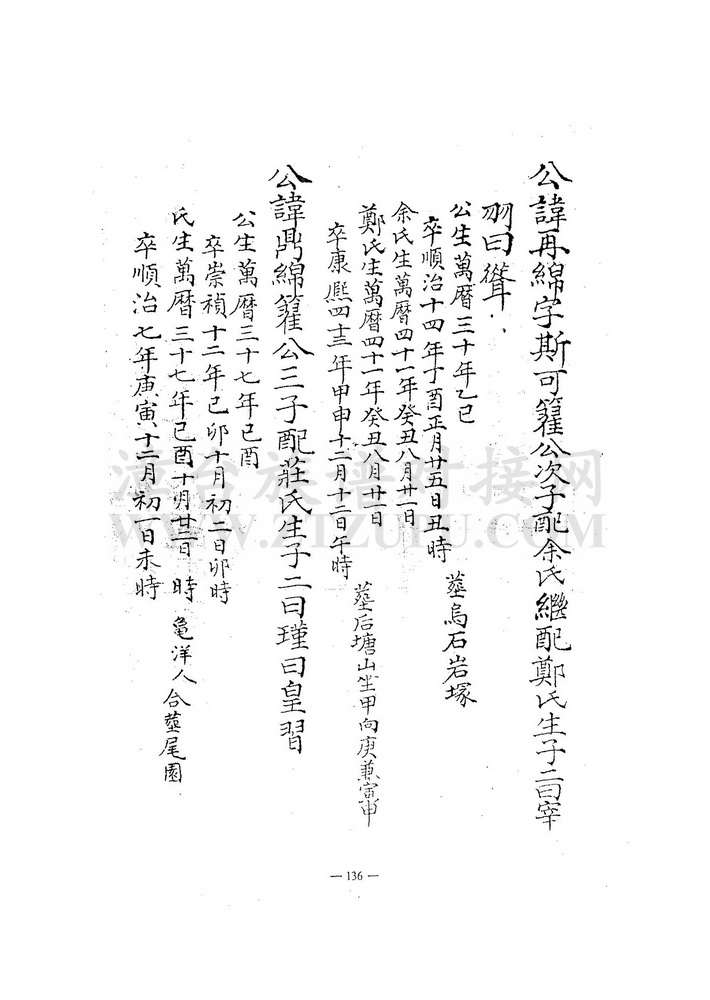 公諱再綿字斯可籊公次子配余氏繼配鄭氏生子二曰宰
羽曰聳
公生萬曆三十年乙巳
卒順治十四年丁酉正月廿五日丑時 葬烏石岩塚
余氏生萬曆四十一年癸丑八月廿一日
鄭氏生萬曆四十一年癸丑八月廿一日
卒康熙四十三年甲申十二月十二日午時 葬后塘山坐甲向庚兼寅申
公諱鼎綿籊公三子配莊氏生子二曰瑾曰皇習
公生萬曆三十七年己酉
卒崇禎十二年己卯十月初二日卯時
氏生萬曆三十七年己酉十月廿三日 時 龜洋人合葬尾園
卒順治七年庚寅十二月初一日未時
漳台族谱对接网
WWW.ZTZUPU.COM
— 136 —